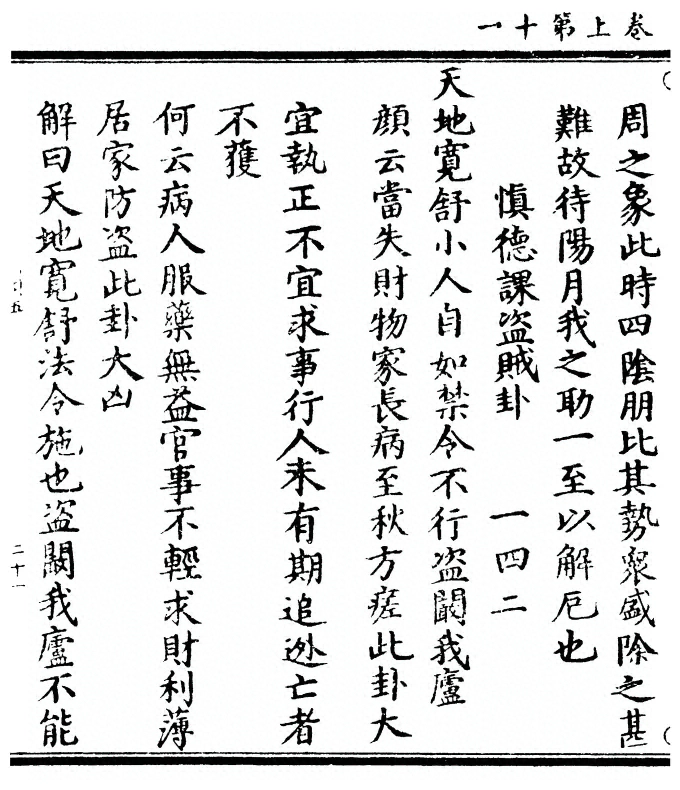 卷上第十一
周之象此時四陰朋比其勢衆盛除之甚
難故待陽月我之助一至以解厄也
慎德課盜賊卦　一四二
天地寬舒小人自如禁令不行盜闞我廬
顔云當失財物家長病至秋方瘥此卦大
宜執正不宜求事行人未有期追逃亡者
不獲
何云病人服藥無益官事不輕求財利薄
居家防盜此卦大凶
解曰天地寬舒法令施也盜闞我廬不能
二十一